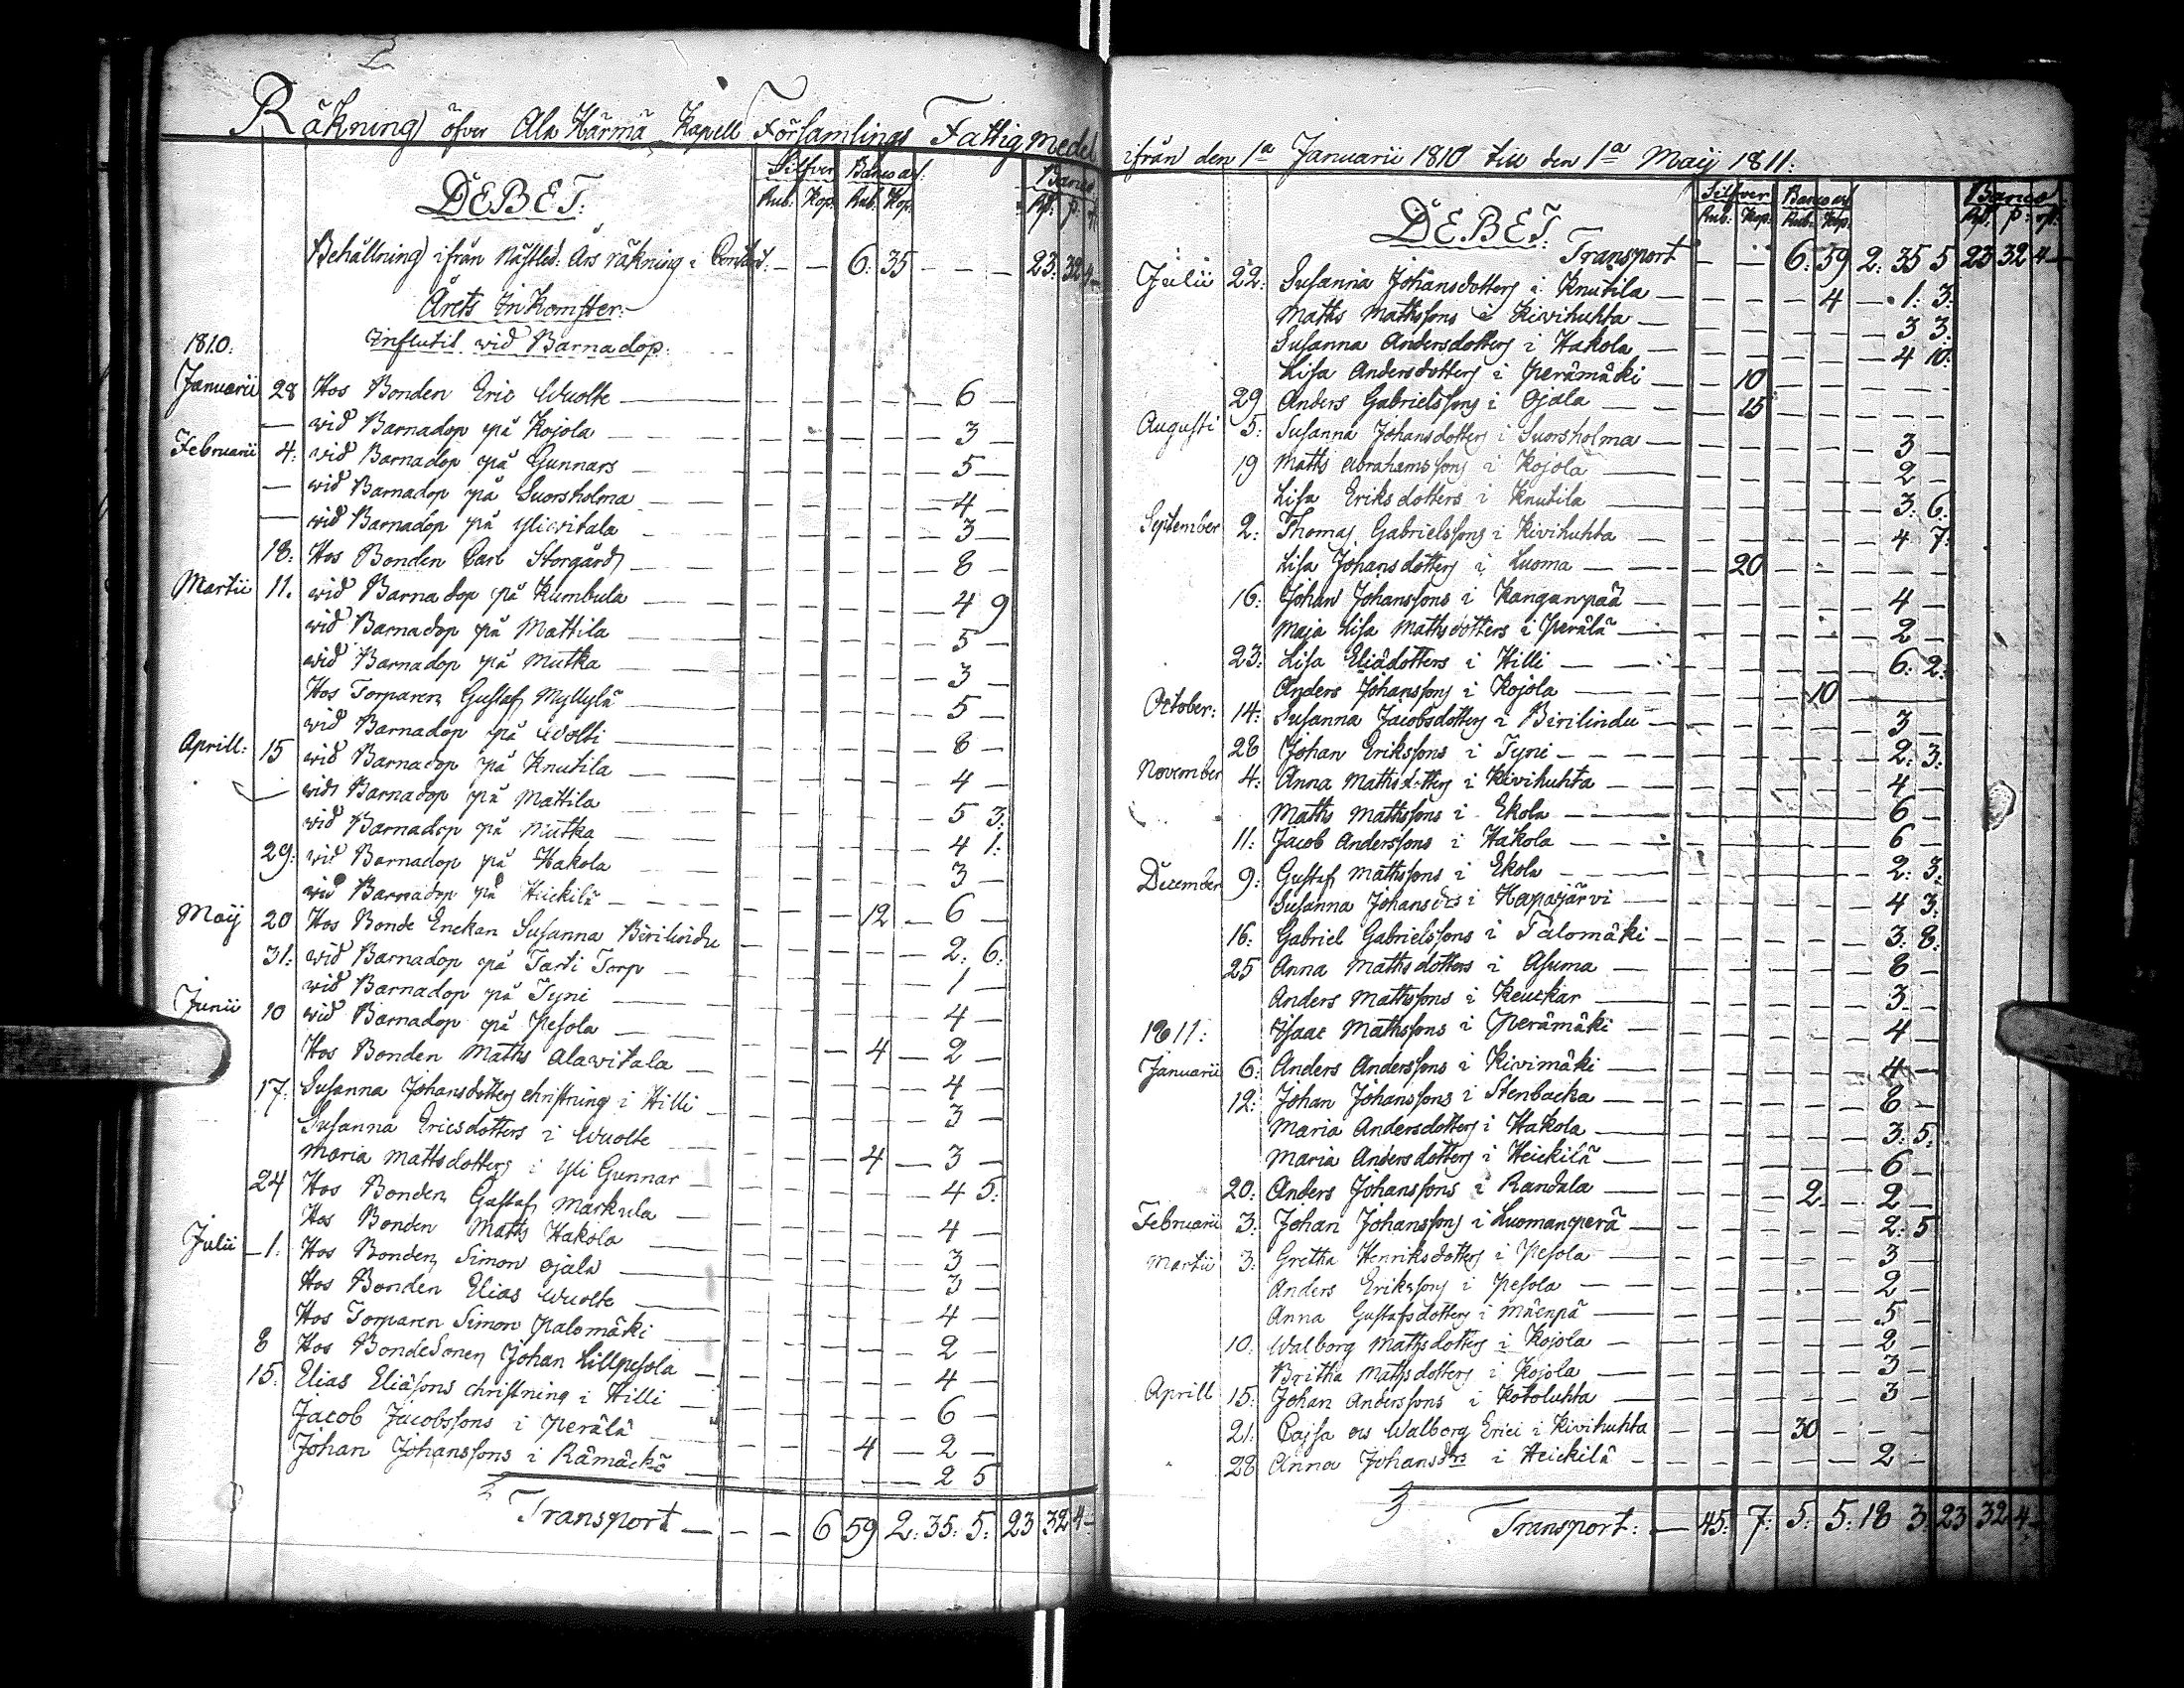 2
Räkning öfver Ala Härmä Kapell Församlings Fattig medel
DEBET:
Silfver Banco as:
Rub: Kop. Rub. Kop:
Banco
Rd: ß:
Behållning ifrån Nästled: Års räkning i Contant: — — 6: 35 — — — 23: 32 4 —
Årets Inkomster:
Influtit wid Barnadop:
1810:
Januarii 28 Hos Bonden Eric Wuolte — 6 —
— wid Barnadop på Kojola — 3 —
Februarii 4: wid Barnadop på Gunnars — 5 —
— wid Barnadop på Suorsholma — 4 —
— wid Barnadop på Yliwitala — 3 —
18: Hos Bonden Carl Storgård — 8 —
Martii 11. wid Barnadop på Kumbula — 4 9
wid Barnadop på Mattila — 5 —
wid Barnadop på Mutka — 3 —
Hos Torparen Gustaf Myllylä — 5 —
wid Barnadop på Wolti — 8 —
Aprill: 15 wid Barnadop på Knutila — 4 —
— wid Barnadop på Mattila — 5 3:
wid Barnadop på Mutka — 4 1:
29: wid Barnadop på Hakola — 3 —
wid Barnadop på Heickilä — 12 — 6 —
Maij 20 Hos Bonde Enckan Susanna Birilindu — 2: 6:
31: wid Barnadop på Tasti Torp — 1 —
wid Barnadop på Tyni — 4 —
Junii 10 wid Barnadop på Pesola — 4 — 2 —
Hos Bonden Maths Alawitala — 4 —
17: Susanna Johansdotters christning i Hilli — 3 —
Susanna Ericsdotters i Wuolte — 4 — 3 —
Maria Mattsdotters i Yli Gunnar — 4 5:
24 Hos Bonden Gustaf Markula — 4 —
Hos Bonden Maths Hakola — 3 —
Julii 1: Hos Bonden Simon Ojala — 3 —
Hos Bonden Elias Wuolte — 4 —
Hos Torparen Simon Palomäki — 2 —
8 Hos BondeSonen Johan Lillpesola — 4 —
15: Elias Eliäsons christning i Hilli — 6 —
Jacob Jacobssons i Perälä — 4 — 2 —
Johan Johanssons i Rämäckö — 2 5
Transport — — — 6 59 2: 35: 5: 23 32 4 —
ifrån den 1a Januarii 1810 till den 1a Maij 1811:
DEBET:
Silfver Banco as
Rub: Kop: Rub: Kop:
Banco
Rd: ß:
Transport — — 6: 59 2: 35 5 23 32 4 —
Julii 22: Susanna Johansdotters i Knutila — 4 — 1: 3:
Maths Mathssons i Kivihuhta — 3 3:
Susanna Andersdotters i Hakola — 4 10:
Lisa Andersdotters i Perämäki — 10 —
29 Anders Gabrielssons i Ojala — 15 —
Augusti 5: Susanna Johansdotters i Suorsholma — 3 —
19 Maths Abrahamssons i Kojola — 2 —
Lisa Eriksdotters i Knutila — 3: 6:
September 2: Thomas Gabrielssons i Kivihuhta — 4 7:
Lisa Johansdotters i Luoma — 20 —
16: Johan Johanssons i Kanganpää — 4 —
Maja Lisa Mathsdotters i Perälä — 2 —
23: Lisa Eliädotters i Hilli — 6: 2:
Anders Johanssons i Kojola — 10 —
October: 14: Susanna Jacobsdotters i Birilindu — 3 —
28 Johan Erikssons i Tyni — 2: 3:
November 4: Anna Mathsdotters i Kivihuhta — 4 —
Maths Mathssons i Ekola — 6 —
11: Jacob Anderssons i Hakola — 6 —
December 9: Gustaf Mathssons i Ekola — 2: 3:
Susanna Johansdrs i Hapajärvi — 4 3:
16: Gabriel Gabrielssons i Talomäki — 3: 8:
25 Anna Mathsdotters i Asuma — 8 —
Anders Mathssons i Keuckar — 3 —
1811: Isaac Mathssons i Perämäki — 4 —
Januarii 6: Anders Anderssons i Kivimäki — 4 —
12: Johan Johanssons i Stenbacka — 8 —
Maria Andersdotters i Hakola — 3: 5:
Maria Andersdotters i Heickilä — 6 —
20: Anders Johanssons i Randala — 2 — 2 —
Februarii 3: Johan Johanssons i Luomanperä — 2: 5
Martii 3: Gretha Henriksdotters i Pesola — 3 —
Anders Erikssons i Pesola — 2 —
Anna Gustafsdotters i Mäenpä — 5 —
10: Walborg Mathsdotters i Kojola — 2 —
Britha Mathsdotters i Kojola — 3 —
Aprill 15: Johan Anderssons i Kotoluhta — 3 —
21: Cajsa och Walborg Erici i Kivihuhta — 30 —
28 Anna Johansdrs i Heickilä — 2 —
3
Transport: — 45: 7: 5: 5: 18 3: 23 32 4 —